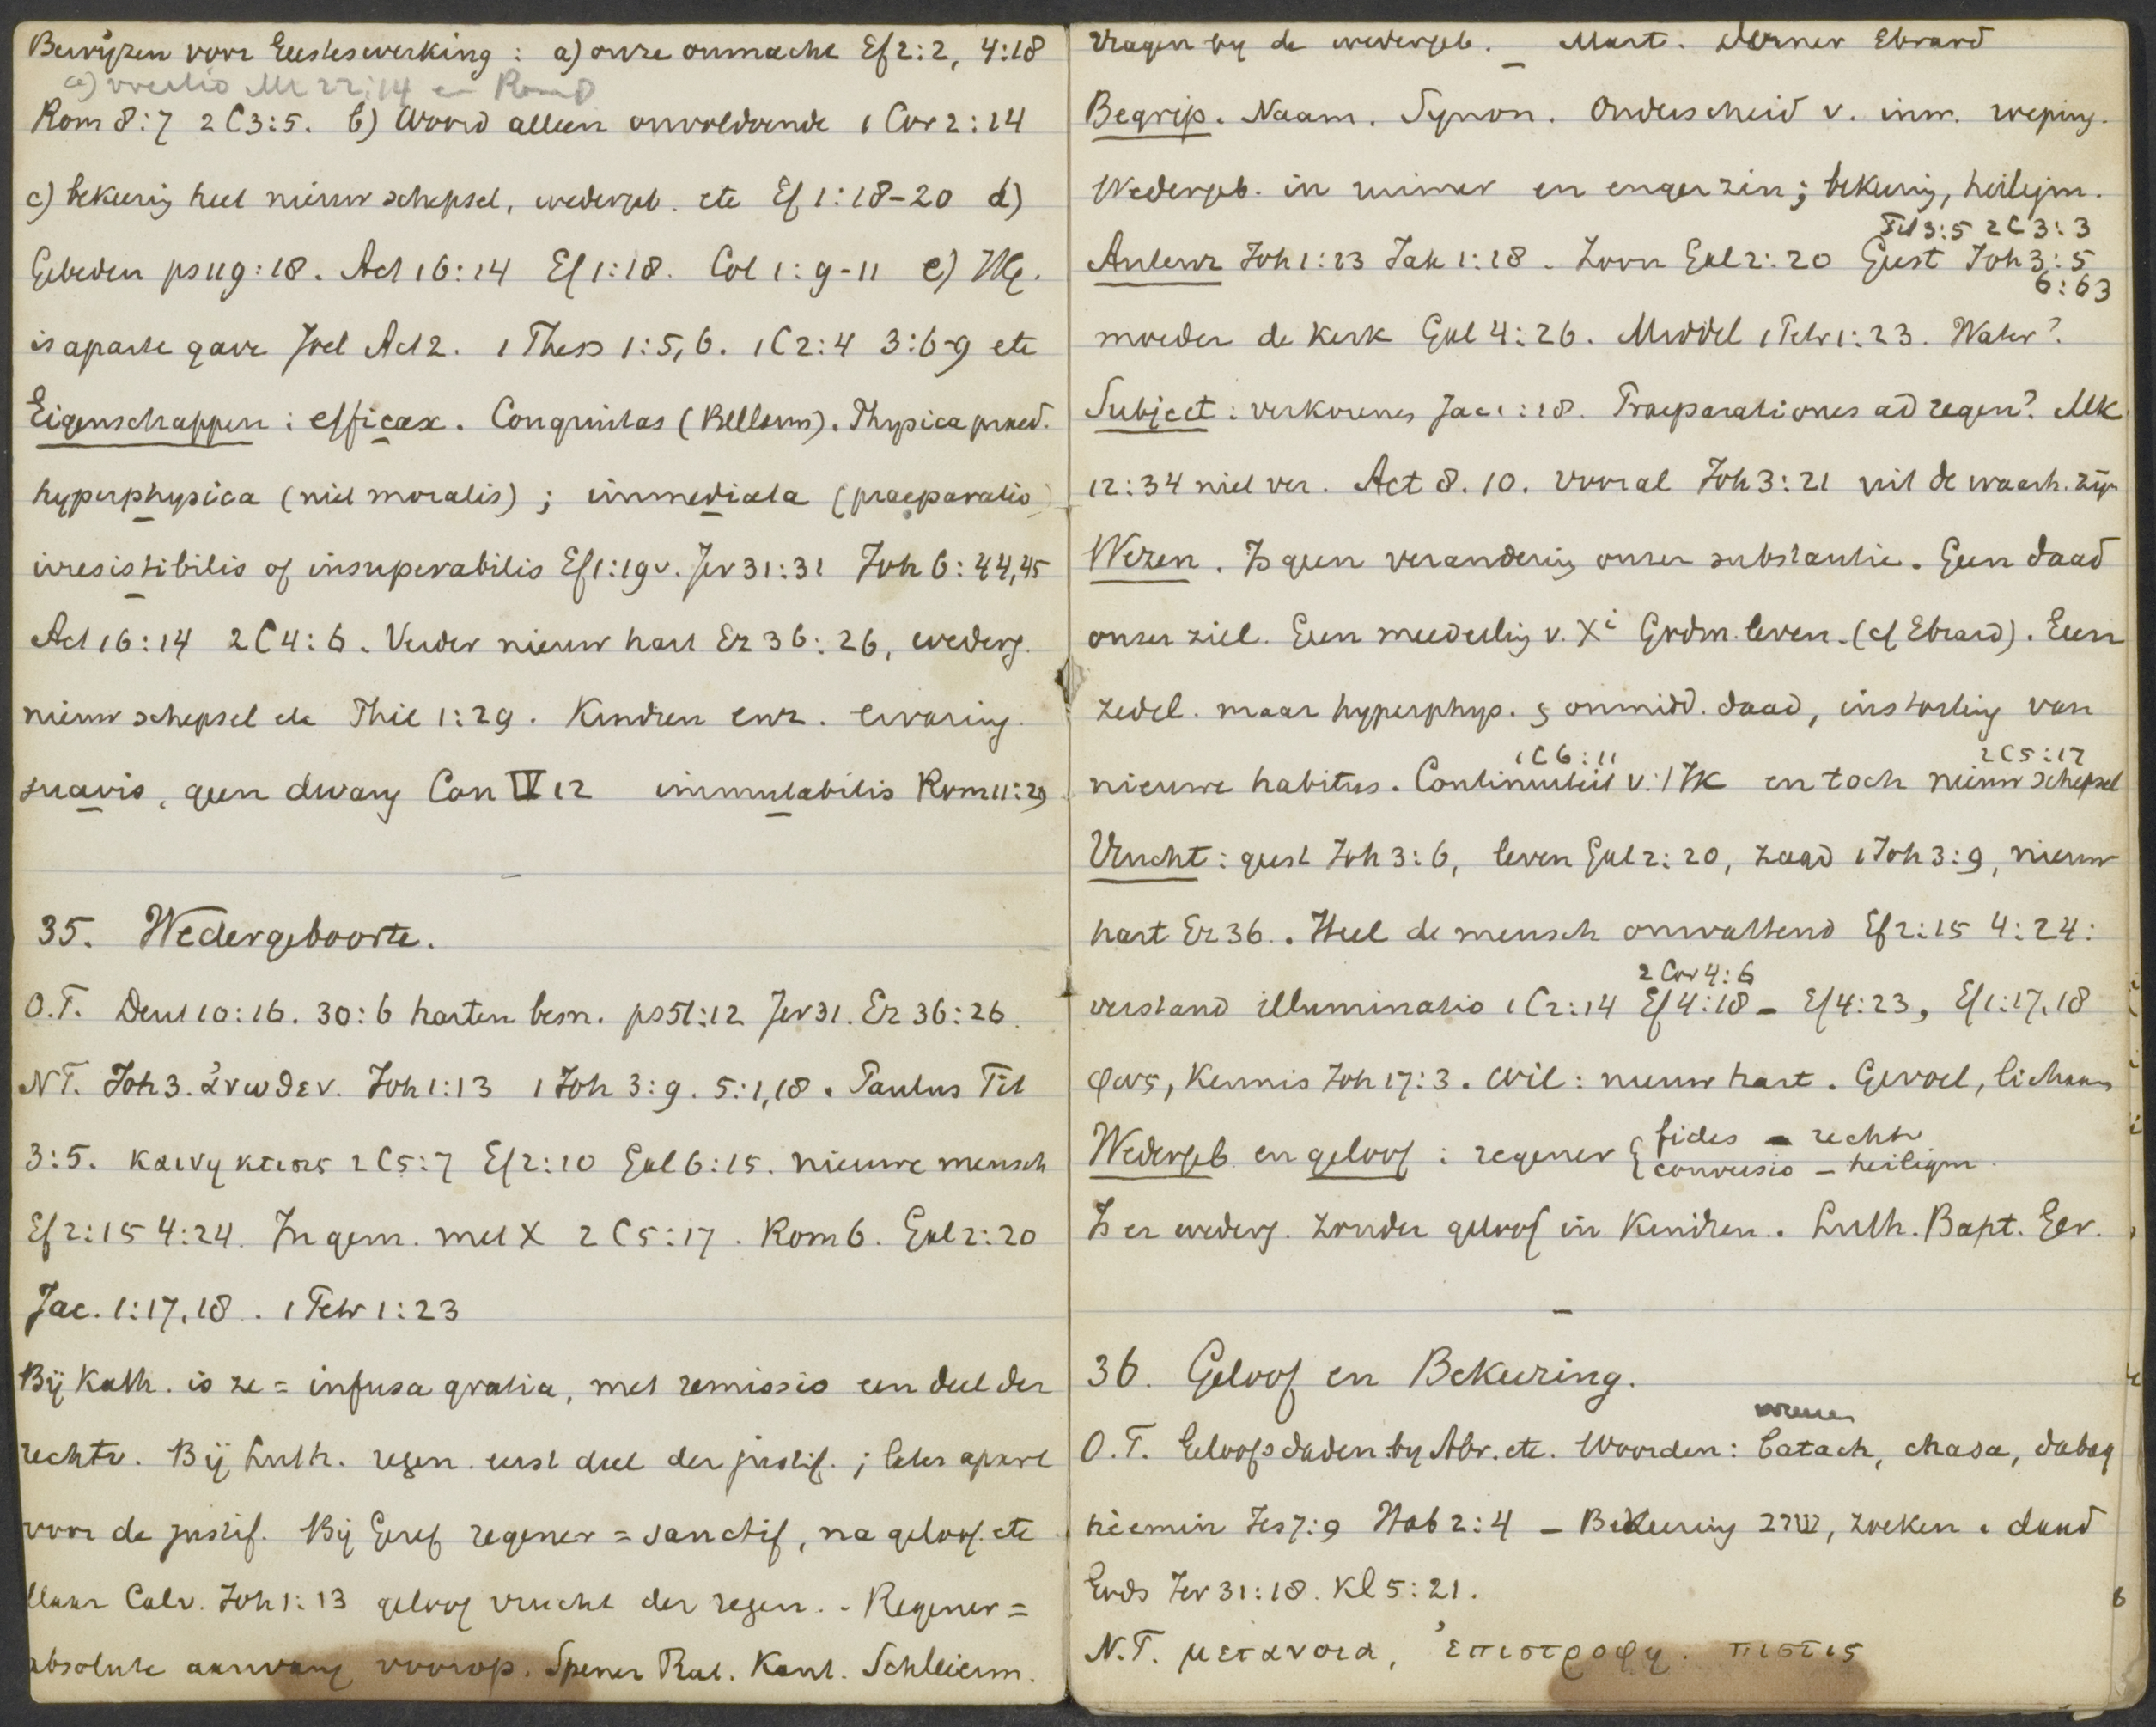 Bewijzen voor Geesteswerking : a) onze onmacht Ef 2:2, 4:18
Mt 22:14 en Rom 8
Rom 8:7 2 C 3:5. b) Woord alleen onvoldoende 1 Cor 2:14
c) bekeering heet nieuw schepsel, wedergeb. etc Ef 1:18-20 d)
Gebeden ps 119:18. Act 16:14 Ef 1:18. Col 1:9-11 e) HG.
is aparte gave Joel Act 2. 1 Thess 1:5,6. 1 C 2:4 3:6-9 etc
Eigenschappen : efficax. Congruitas (Bellarm). Physica praed.
hyperphysica (niet moralis) ; immediata (praeparatio)
irresistibilis of insuperabilis Ef 1:19v. Jer 31:31 Joh 6:44,45
Act 16:14 2 C 4:6. Verder nieuw hart Ez 36:26, wederg.
nieuw schepsel etc Phil 1:29. Kindren enz. ervaring.
suavis, geen dwang Can IV 12 immutabilis Rom 11:29
35. Wedergeboorte.
O.T. Deut 10:16. 30:6 harten besn. ps 51:12 Jer 31. Ez 36:26.
NT. Joh 3. ἀνωθεν. Joh 1:13 1 Joh 3:9. 5:1,18. Paulus Tit
3:5. καινη κτισις 2 C 5:7 Ef 2:10 Gal 6:15. nieuwe mensch
Ef 2:15 4:24. In gem. met X 2 C 5:17. Rom 6. Gal 2:20
Jac. 1:17,18. 1 Petr 1:23
Bij Kath. is ze = infusa gratia, met remissio een deel der
rechtv. Bij Luth. regen. eerst deel der justif. ; later apart
voor de justif. Bij Geref regener = sanctif, na geloof. etc
Maar Calv. Joh 1:13 geloof vrucht der regen. - Regener =
absolute aanvang voorop. Spener Rat. Kant. Schleierm.
Vragen bij de wedergeb. - Mart. Dorner Ebrard
Begrip. Naam. Synon. Onderscheid v. inw. roeping.
Wedergeb. in ruimer en enger zin; bekeering, heiligm.
Tit 3:5 2 C 3:3
Auteur Joh 1:13 Jak 1:18. Zoon Gal 2:20 Geest Joh 3:5
6:63
moeder de kerk Gal 4:26. Middel 1 Petr 1:23. Water?
Subject : verkorenen Jac 1:18. Praeparationes ad regen? Mk
12:34 niet ver. Act 8.10. vooral Joh 3:21 uit de waarh. zijn
Wezen. Is geen verandering onzer substantie. Geen daad
onzer ziel. Geen mededeeling v. Xi Godm. leven. (cf Ebrard). Een
zedel. maar hyperphys. & onmidd. daad, instorting van
1 C 6:11 2 C 5:17
nieuwe habitus. Continuiteit v. 't Ik en toch nieuw schepsel
Vrucht : geest Joh 3:6, leven Gal 2:20, zaad 1 Joh 3:9, nieuw
hart Ez 36. Heel de mensch omvattend Ef 2:15 4:24:
2 Cor 4:6
verstand illuminatio 1 C 2:14 Ef 4:18 - Ef 4:23, Ef 1:17,18
φως, kennis Joh 17:3. Wil : nieuw hart. Gevoel, lichaam
Wedergeb. en geloof : regener { fides - rechtv
conversio - heiligm.
Is er wederg. zonder geloof in kindren. Luth. Bapt. Ger.
36. Geloof en Bekeering.
O.T. Geloofsdaden by Abr. etc. Woorden : batach, chasa, dabaq
heemin Jes 7:9 Hab 2:4 - Bekeering שוב, zoeken. daad
Gods Jer 31:18. Kl 5:21.
N.T. μετανοια, ἐπιστροφη. πιστις